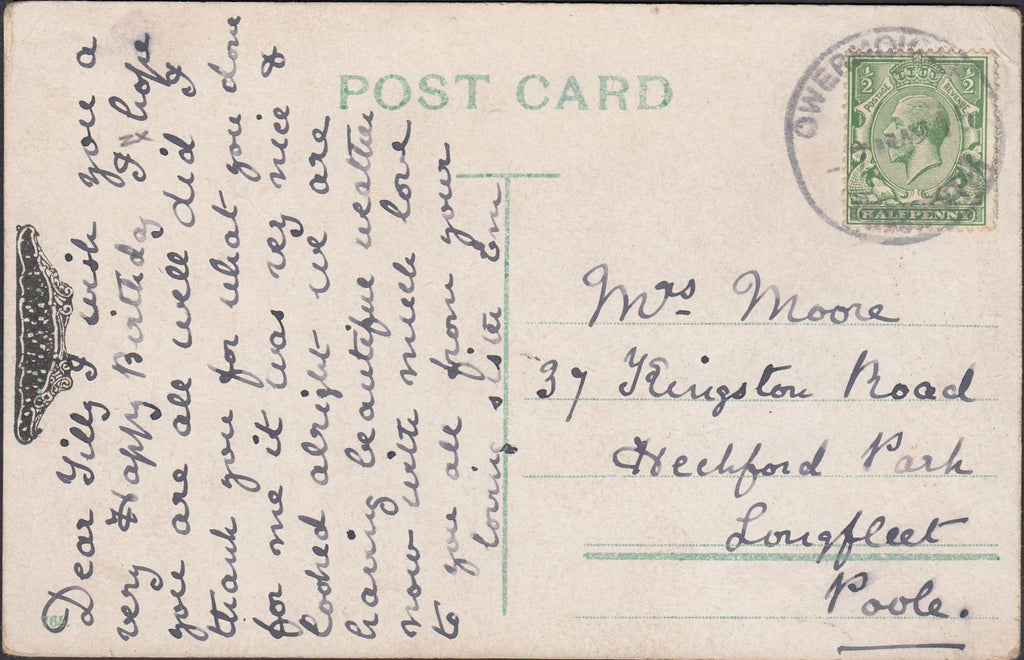 POST CARD
Dear Tilly I wish you a
very Happy Birthday I hope
you are all well did I
thank you for what you done
for me it was very nice &
looked alright we are
having beautiful weather
now with much love
to you all from your
loving sister Em
½ ½
POSTAGE REVENUE
HALFPENNY
Mrs Moore
37 Kingston Road
Heckford Park
Longfleet
Poole.